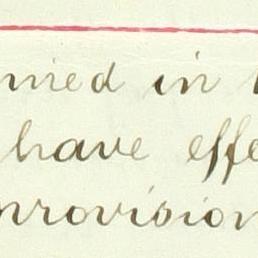 nied in
have effe
provision